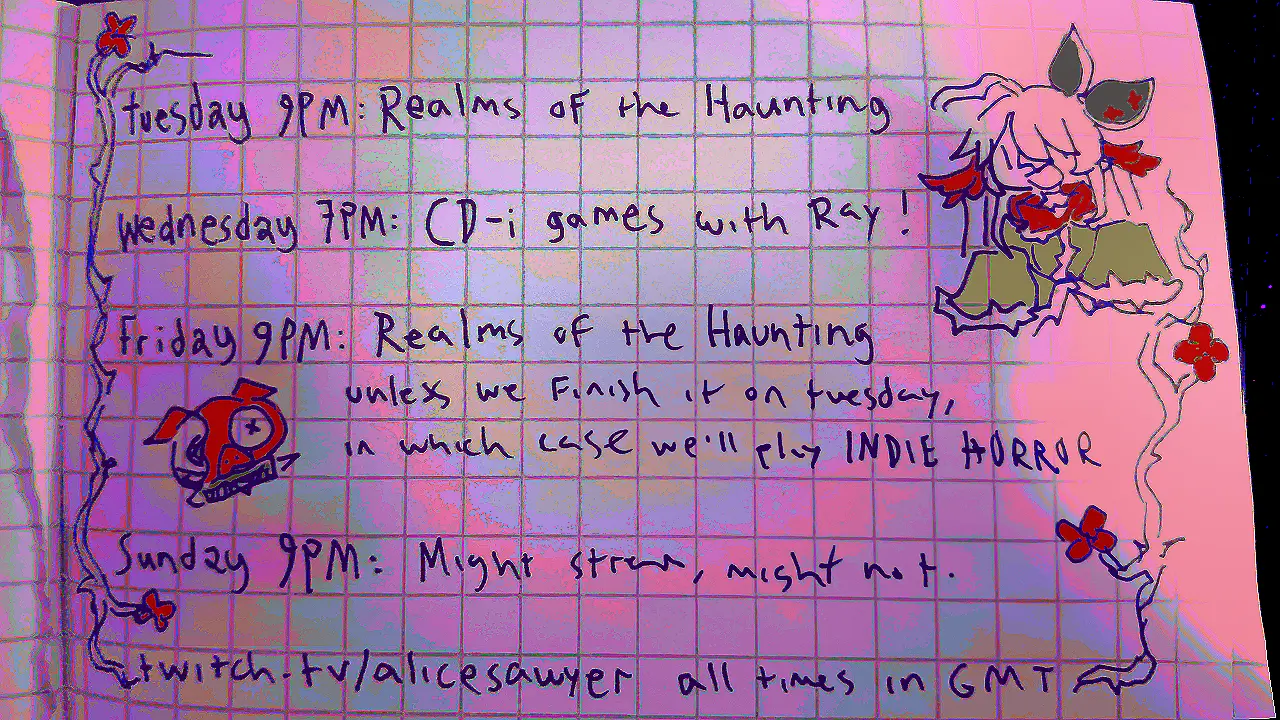 tuesday 9PM: Realms of the Haunting
wednesday 7PM: CD-i games with Ray!
Friday 9PM: Realms of the Haunting
unless we finish it on tuesday,
in which case we'll play INDIE HORROR
Sunday 9PM: Might stream, might not.
twitch.tv/alicesawyer all times in GMT